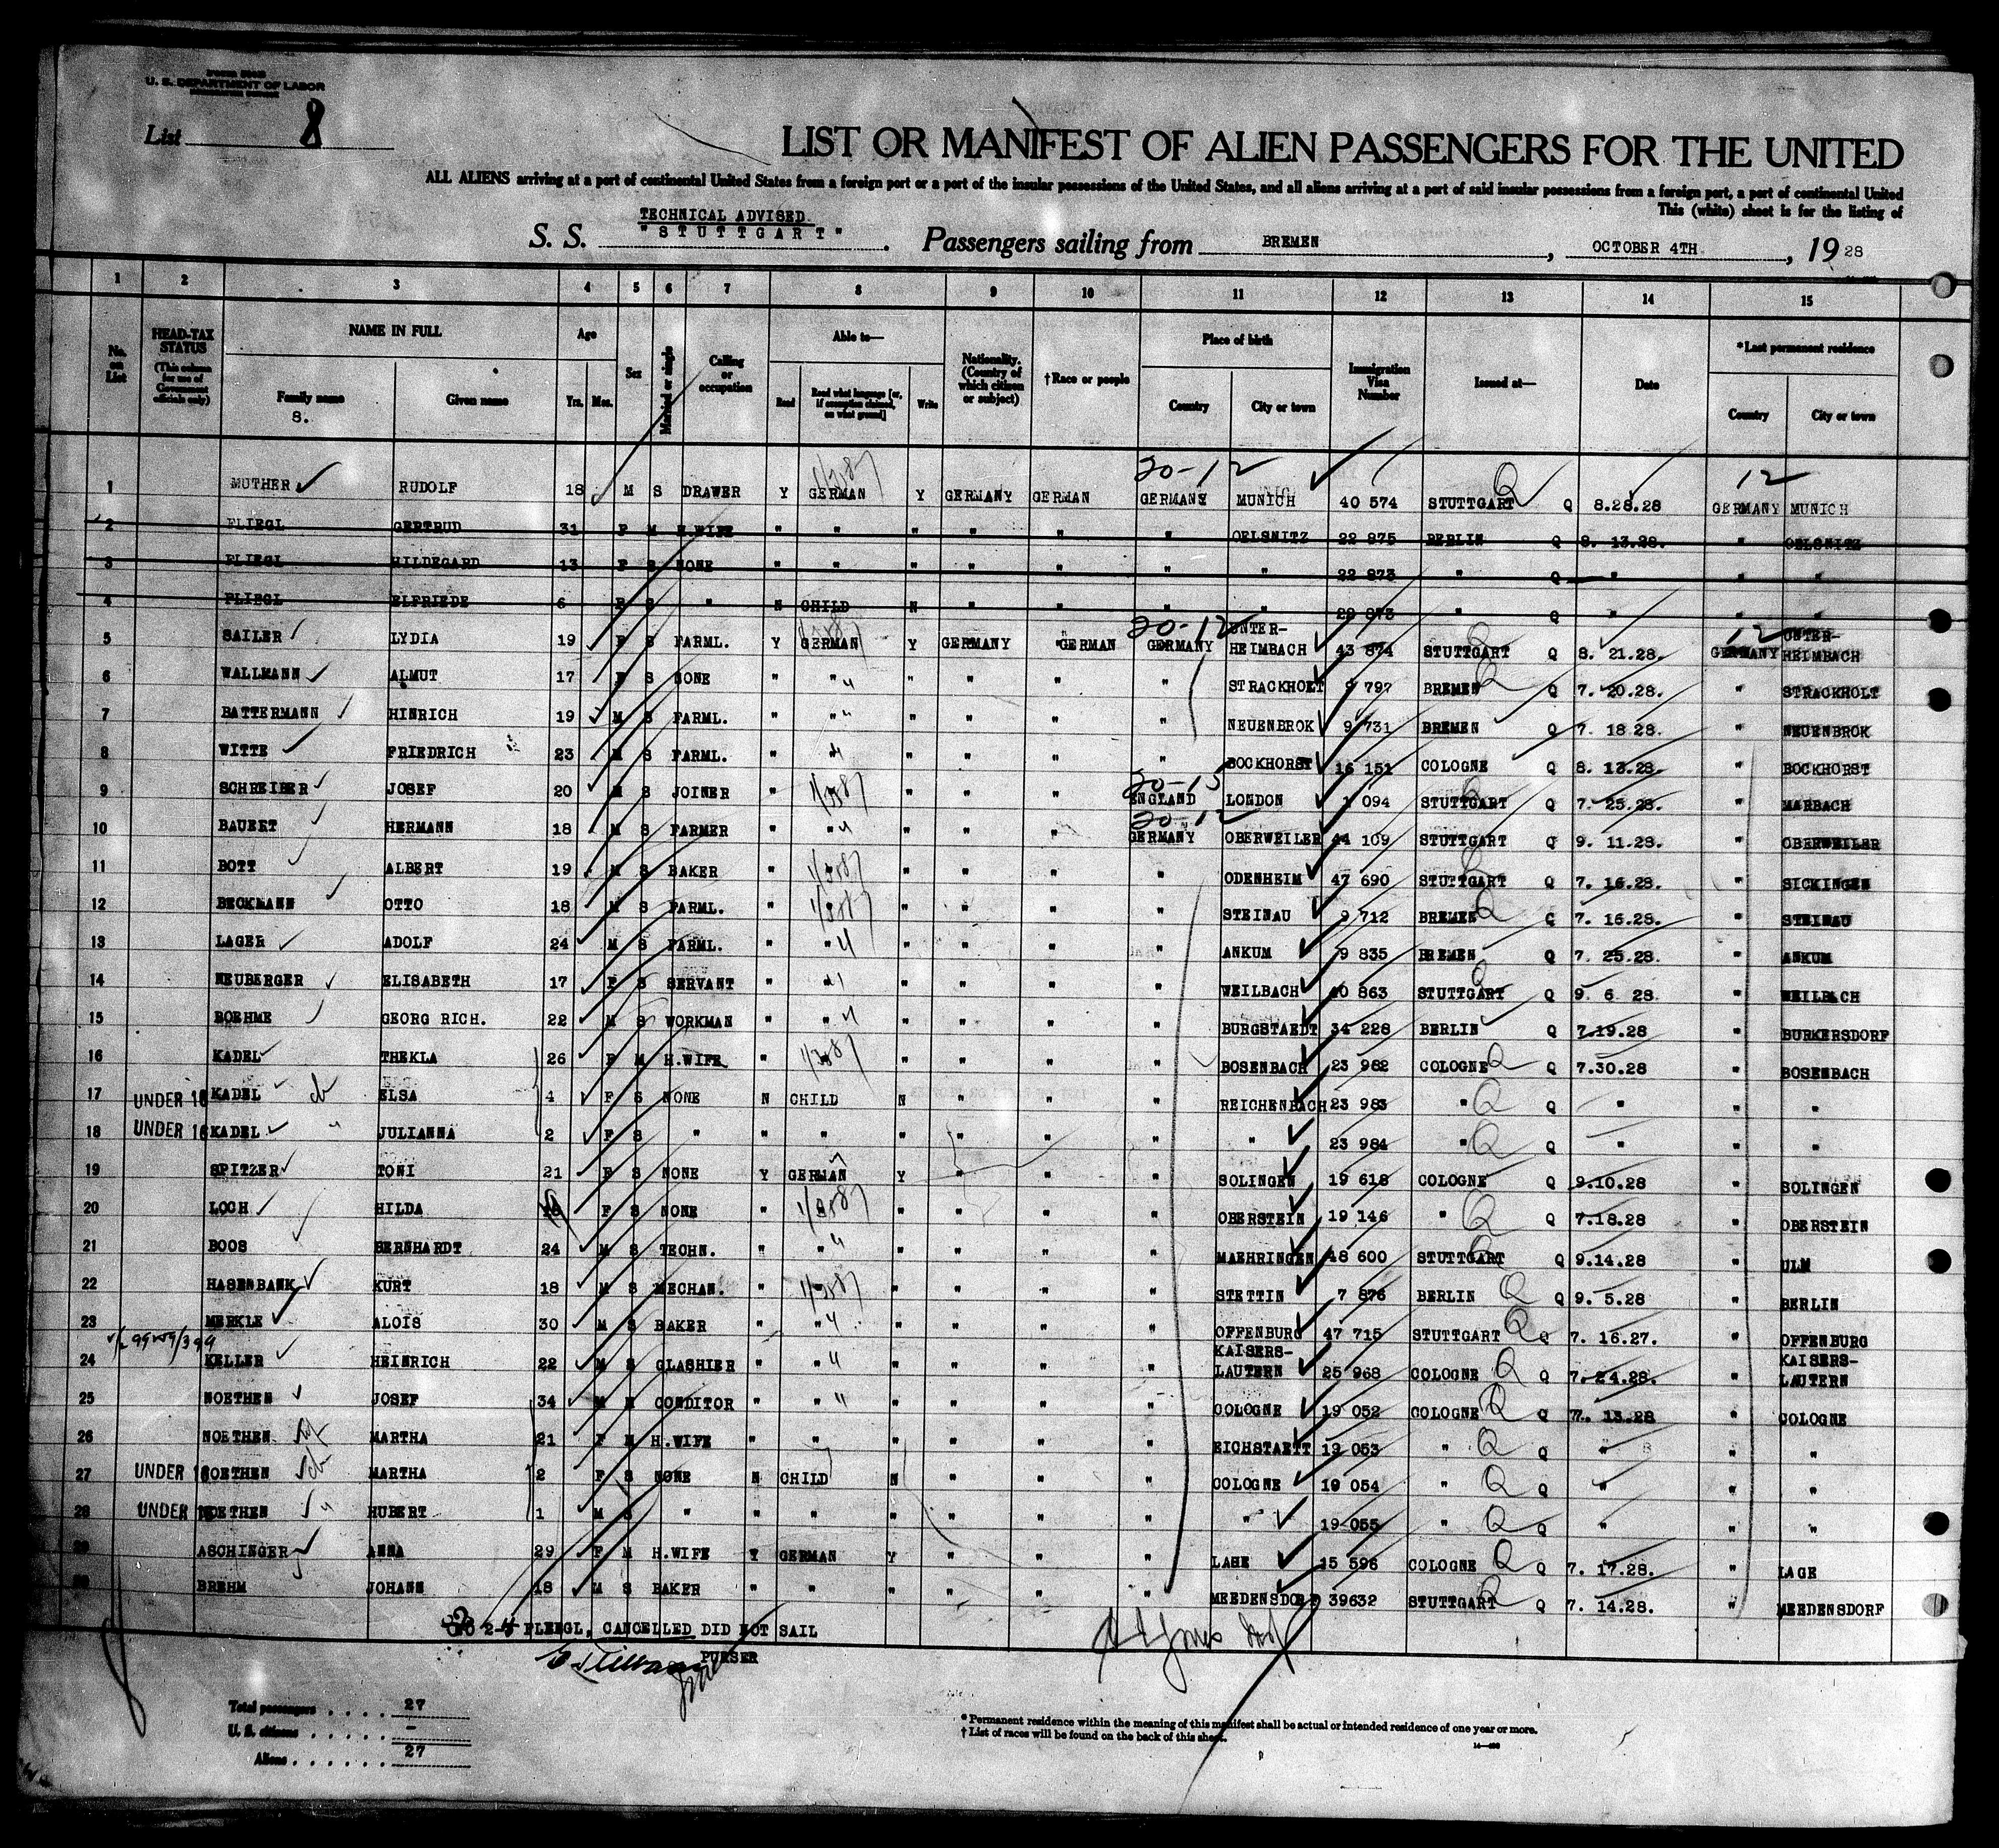 U. S. DEPARTMENT OF LABOR
List 8
LIST OR MANIFEST OF ALIEN PASSENGERS FOR THE UNITED
ALL ALIENS arriving at a port of continental United States from a foreign port or a port of the insular possessions of the United States, and all aliens arriving at a port of said insular possessions from a foreign port, a port of continental United
This (white) sheet is for the listing of
TECHNICAL ADVISED.
S. S. "STUTTGART". Passengers sailing from BREMEN, OCTOBER 4TH, 1928
1 2 3 4 5 6 7 8 9 10 11 12 13 14 15
No. on List HEAD-TAX STATUS (This column for use of Government officials only) NAME IN FULL Family name S. Given name Age Yrs. Mos. Sex Married or single Calling or occupation Able to— Read Read what language [or, if exemption claimed, on what ground] Write Nationality. (Country of which citizen or subject) †Race or people Place of birth Country City or town Immigration Visa Number Issued at— Date *Last permanent residence Country City or town
20-12 12
1 MUTHER RUDOLF 18 M S DRAWER Y GERMAN Y GERMANY GERMAN GERMANY MUNICH 40 574 STUTTGART Q 8.28.28 GERMANY MUNICH
2 FLIEGL GERTRUD 31 F M H.WIFE " " " " " " OELSNITZ 22 875 BERLIN Q 8. 13.28. " OELSNITZ
3 FLIEGL HILDEGARD 13 F S NONE " " " " " " " 22 873 " Q " " "
4 FLIEGL ELFRIEDE 6 F S " N CHILD N " " " " 22 873 " Q " " "
20-12 12
5 SAILER LYDIA 19 F S FARML. Y GERMAN Y GERMANY "GERMAN GERMANY UNTER-HEIMBACH 43 874 STUTTGART Q 8. 21.28. GERMANY UNTER-HEIMBACH
6 WALLMANN ALMUT 17 F S NONE " " " " " " STRACKHOLT 9 797 BREMEN Q 7. 20.28. " STRACKHOLT
7 BATTERMANN HINRICH 19 M S FARML. " " " " " " NEUENBROK 9 731 BREMEN Q 7. 18 28. " NEUENBROK
8 WITTE FRIEDRICH 23 M S FARML. " " " " " " BOCKHORST 16 151 COLOGNE Q 8. 13.28. " BOCKHORST
20-15
9 SCHREIBER JOSEF 20 M S JOINER " " " " ENGLAND LONDON 1 094 STUTTGART Q 7. 25.28. " MARBACH
20-12
10 BAUERT HERMANN 18 M S FARMER " " " " " GERMANY OBERWEILER 44 109 STUTTGART Q 9. 11.28. " OBERWEILER
11 BOTT ALBERT 19 M S BAKER " " " " " ODENHEIM 47 690 STUTTGART Q 7. 16.28. " SICKINGEN
12 BECKMANN OTTO 18 M S FARML. " " " " " STEINAU 9 712 BREMEN Q 7. 16.28. " STEINAU
13 LAGER ADOLF 24 M S FARML. " " " " " " ANKUM 9 835 BREMEN Q 7. 25.28. " ANKUM
14 NEUBERGER ELISABETH 17 F S SERVANT " " " " " WEILBACH 40 863 STUTTGART Q 9. 6 28. " WEILBACH
15 BOEHME GEORG RICH. 22 M S WORKMAN " " " " " " BURGSTAEDT 34 228 BERLIN Q 7.19.28 " BURKERSDORF
16 KADEL THEKLA 26 F M H.WIFE " " " " " " BOSENBACH 23 982 COLOGNE Q 7.30.28 " BOSENBACH
17 UNDER 16 KADEL ELSA 4 F S NONE N CHILD N " " " REICHENBACH 23 983 " Q " " "
18 UNDER 16 KADEL JULIANNA 2 F S " " " " " " " " 23 984 " Q " " "
19 SPITZER TONI 21 F S NONE Y GERMAN Y " " " SOLINGEN 19 618 COLOGNE Q 9.10.28 " SOLINGEN
20 LOCH HILDA F S NONE " " " " " OBERSTEIN 19 146 " Q 7.18.28 " OBERSTEIN
21 BOOS BERNHARDT 24 M S TECHN. " " " " " " MAEHRINGEN 48 600 STUTTGART Q 9.14.28 " ULM
22 HASENBANK KURT 18 M S MECHAN. " " " " " STETTIN 7 876 BERLIN Q 9. 5.28 " BERLIN
23 MERKLE ALOIS 30 M S BAKER " " " " " " OFFENBURG 47 715 STUTTGART Q 7. 16.27. " OFFENBURG
24 KELLER HEINRICH 22 M S GLASHIER " " " " " " KAISERS-LAUTERN 25 968 COLOGNE Q 7.24.28. " KAISERS-LAUTERN
25 NOETHEN JOSEF 34 M M CONDITOR " " " " " " COLOGNE 19 052 COLOGNE Q 7. 13.28 " COLOGNE
26 NOETHEN MARTHA 21 F M H.WIFE " " " " " " EICHSTAETT 19 053 " Q " " "
27 UNDER 16 NOETHEN MARTHA 2 F S NONE N CHILD N " " " COLOGNE 19 054 " Q " " "
28 UNDER 16 NOETHEN HUBERT 1 M S " " " " " " " " 19 055 " Q " " "
29 ASCHINGER ANNA 29 F M H.WIFE Y GERMAN Y " " " LAHE 15 596 COLOGNE Q 7. 17.28. " LAGE
30 BREHM JOHANN 18 M S BAKER " " " " " " MEEDENSDORF 39632 STUTTGART Q 7. 14.28. " MEEDENSDORF
2-4 FLIEGL, CANCELLED DID NOT SAIL
PURSER
Total passengers . . . . 27
U. S. citizens . . . . . -
Aliens . . . . . . 27
* Permanent residence within the meaning of this manifest shall be actual or intended residence of one year or more.
† List of races will be found on the back of this sheet.